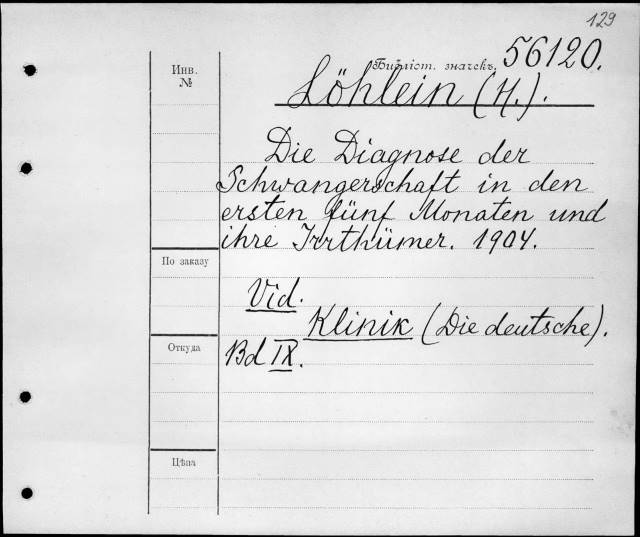 129
Библіот. значекъ. 56120.
Инв.
№
Löhlein (H.).
Die Diagnose der
Schwangerschaft in den
ersten fünf Monaten und
ihre Irrthümer. 1904.
По заказу
Vid.
Klinik (Die deutsche).
Откуда
Bd IX.
Цѣна